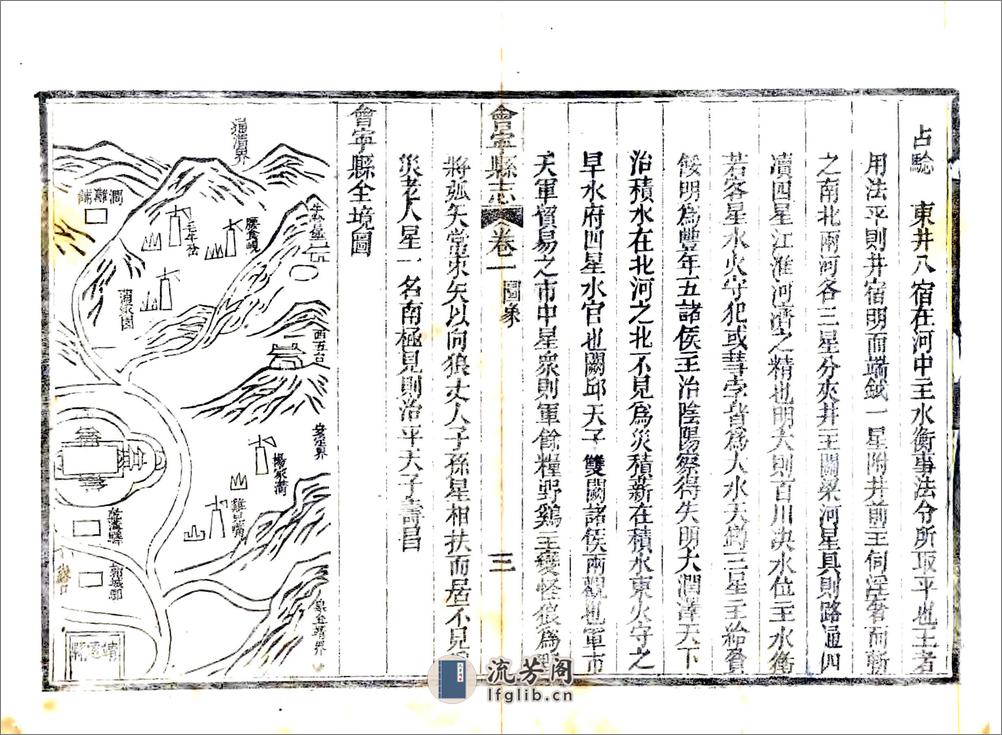 占驗　東井八宿在河中主水衡事法令所取平也王者
用法平則井宿明而端鉞一星附井前主伺淫奢而斬
之南北兩河各三星分夾井主關梁河星具則路通四
瀆四星江淮河濟之精也明大則百川決水位主水衡
若客星水火守犯或彗孛皆為大水天鐏三星主給餐
餒明為豐年五諸侯主治陰陽察得失明大潤澤天下
治積水在北河之北不見為災積薪在積水東火守之
旱水府四星水官也闕邱天子雙闕諸侯兩觀也軍市
天軍貿易之市中星衆則軍餘糧野鷄主變怪狼為
將弧矢當東矢以向狼丈人子孫星相扶而居不見
災老人星一名南極見則治平天子壽昌
會寧縣志
卷一
圖象
三
會寧縣全境圖
通渭界
西五台
安定界
楊家灣
雞兒嘴
流芳阁
lfglib.cn